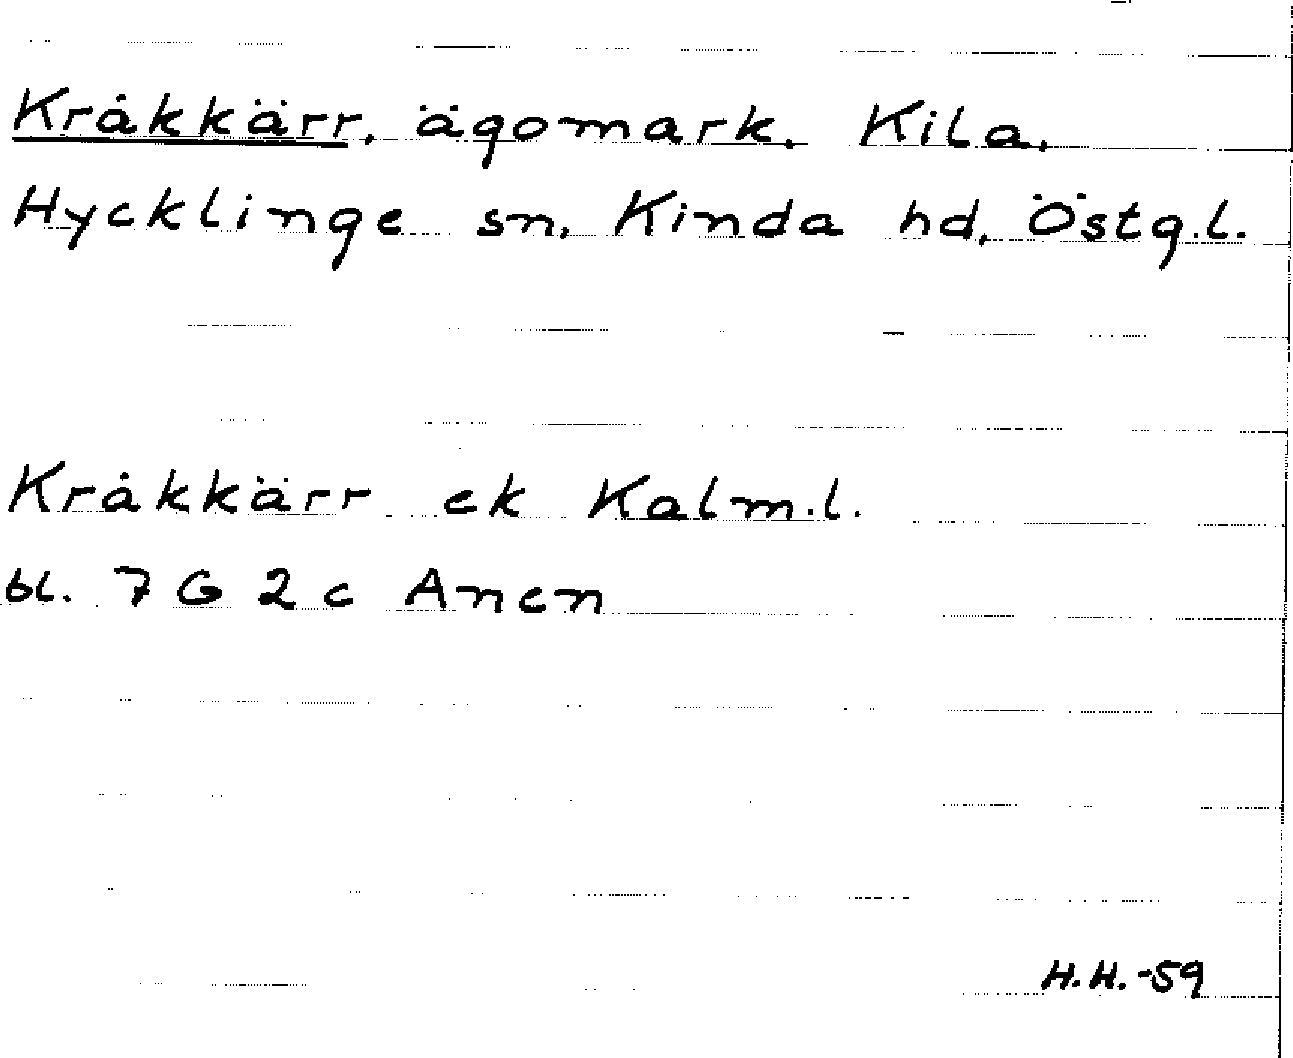 Kråkkärr, ägomark. Kila,
Hycklinge sn, Kinda hd, Östg.l.
Kråkkärr ek Kalm.l.
bl. 7 G 2 c Anen
H.H.-59